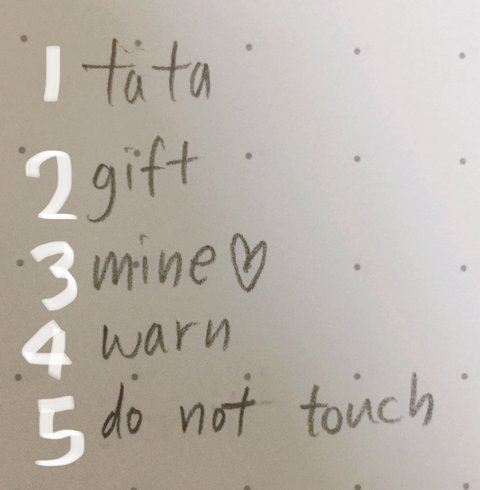 1 tata
2 gift
3 mine♡
4 warn
5 do not touch